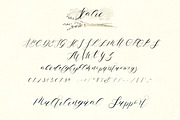 Salie
ABCDEFGHIJKLMNOPQRS
TUVWXYZ
abcdefghijklmnopqrstuvwxyz
Multilingual Support